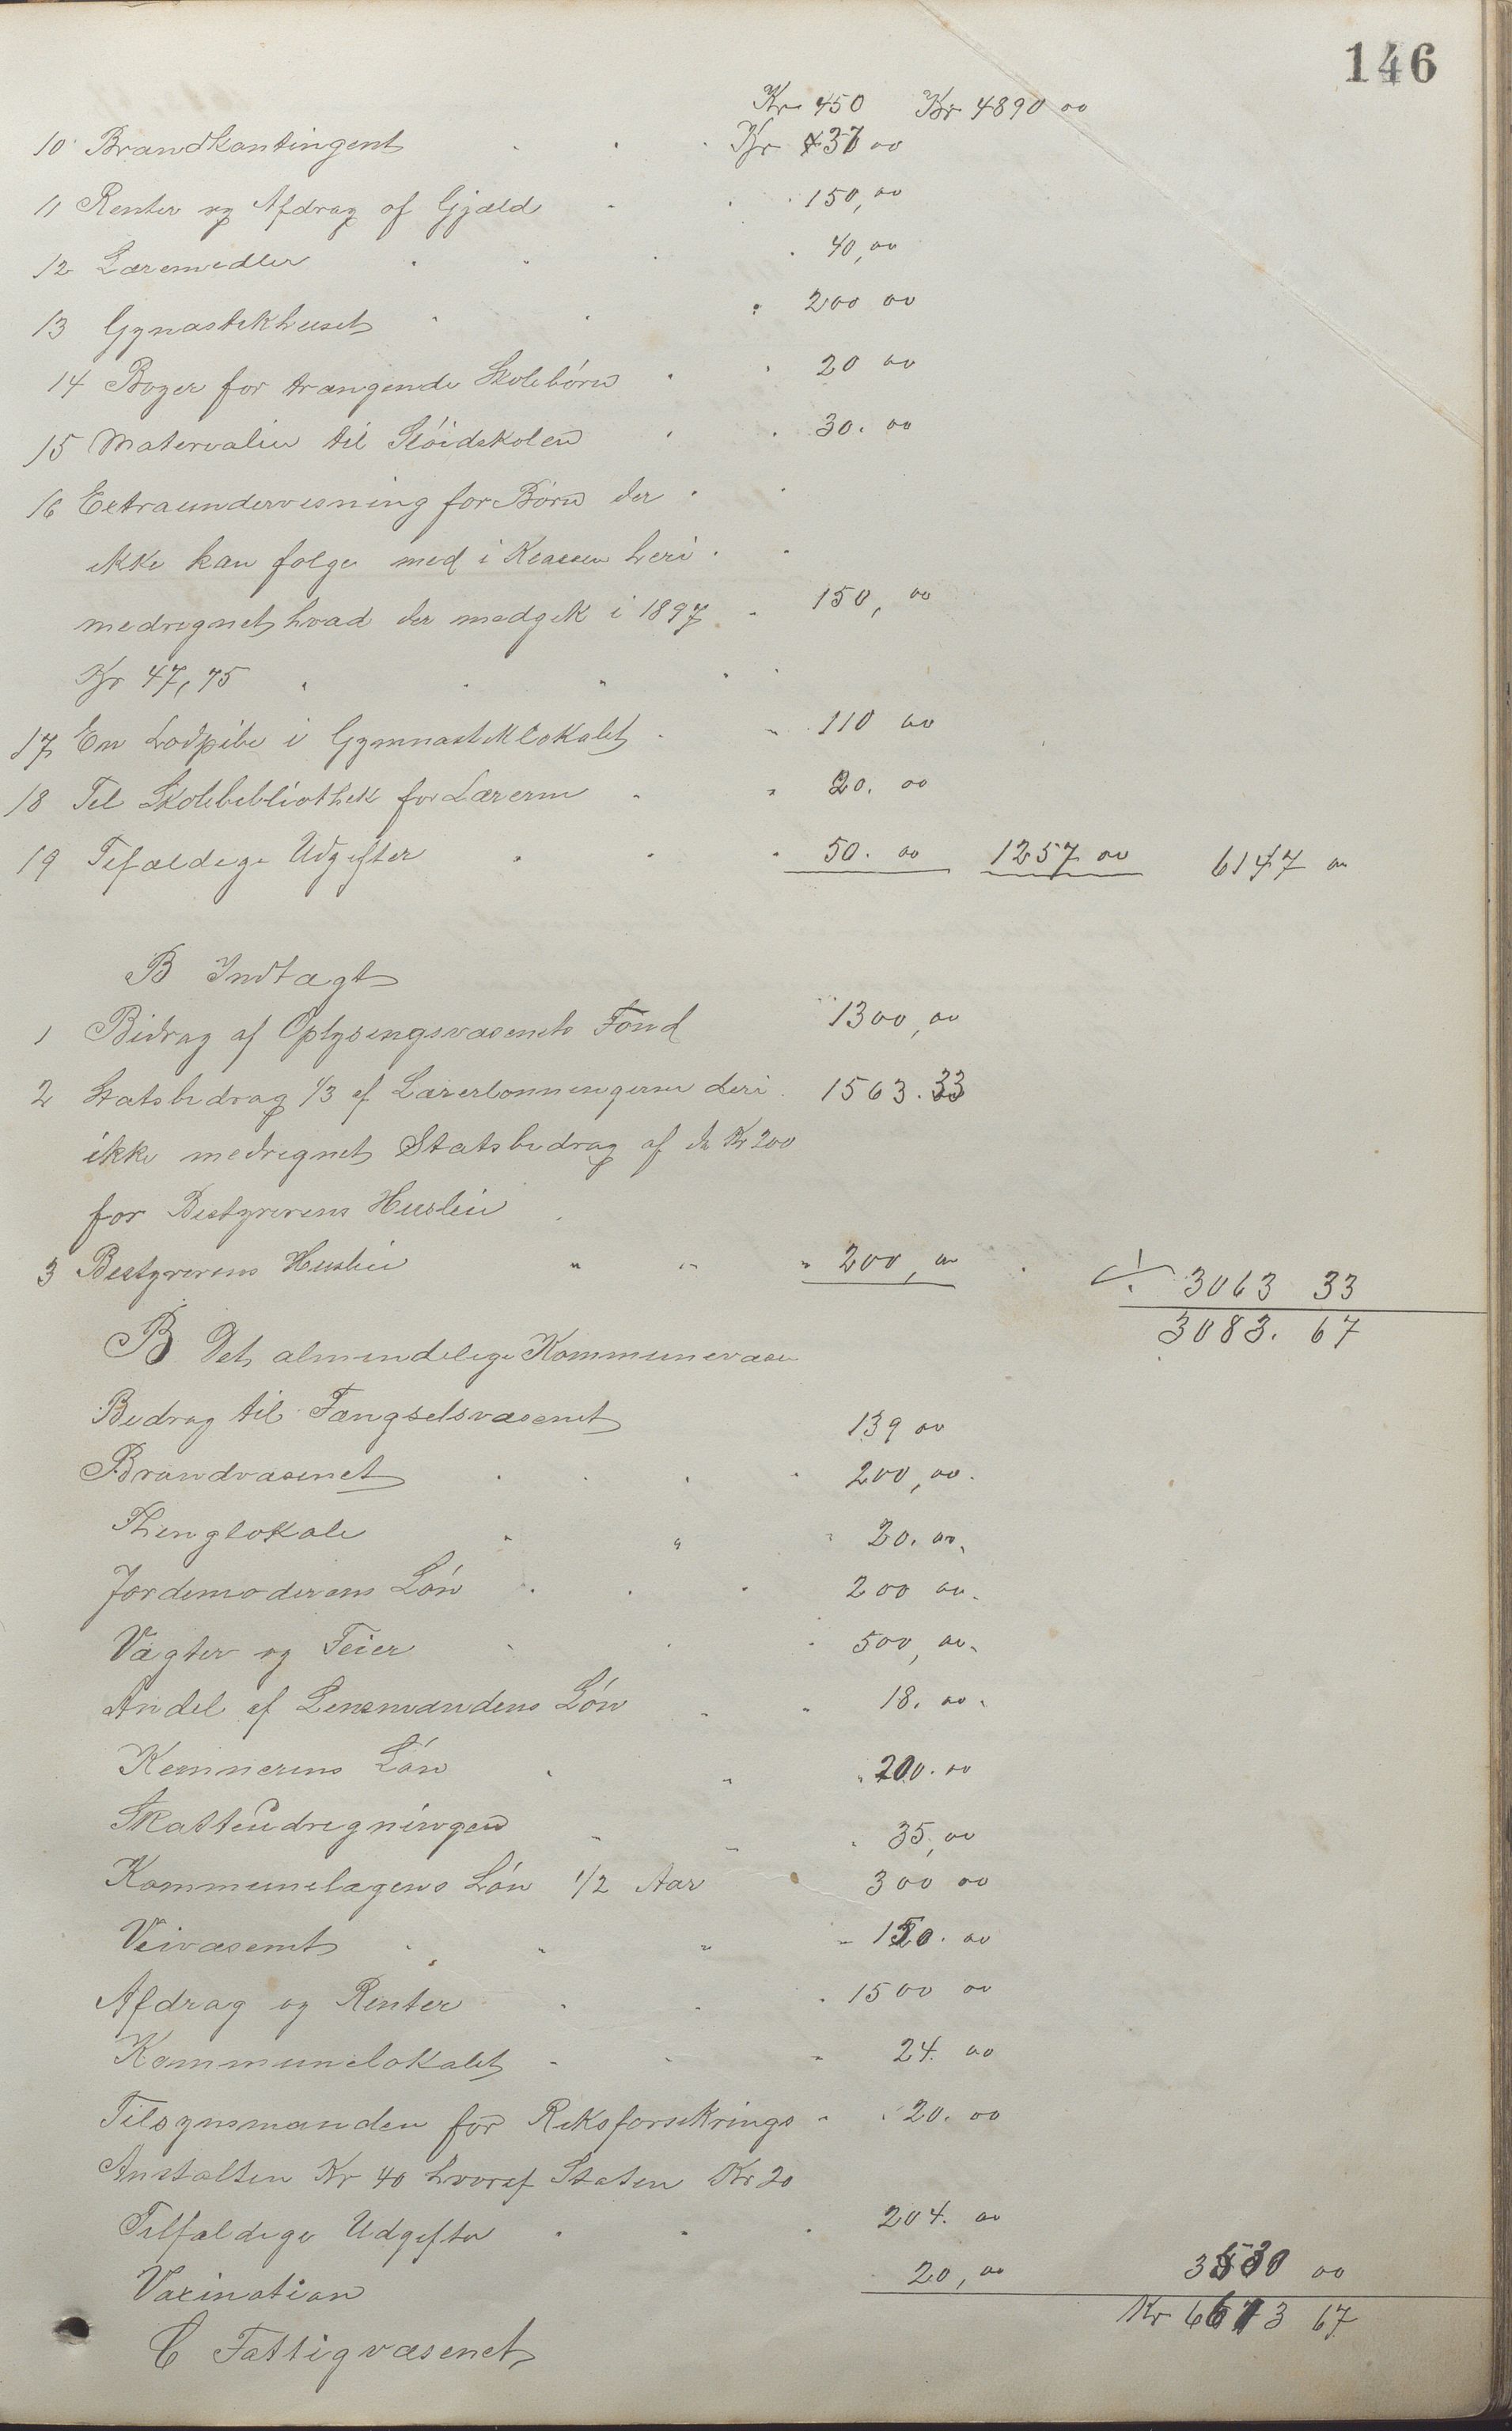 146
Kr 450 Kr 4890 00
10 Brandkontingent Kr 37 00
11 Renter og Afdrag af Gjæld 150,00
12 Læremedler 40,00
13 Gynastikhuset 200 00
14 Bøger for trængende Skolebørn 20 00
15 Materialier til Slöidskolen 30. 00
16 Extraundervisning for Børn der
ikke kan følge med i Klassen heri
medregnet hvad der medgik i 1897 150,00
Kr 47,75
17 En Lodpibe i Gymnastiklokalet 110 00
18 Til Skolebibliothek for Lærerne 20. 00
19 Tifældige Udgifter 50. 00 1257 00 6147 00
B Indtægt
1 Bidrag af Oplysingsvæsenets Fond 1300,00
2 Statsbidrag 1/3 af Lærerlønningerne deri 1563.33
ikke medregnet Statsbidrag af de Kr 200
for Bestyrerens Husleie
3 Bestyrerens Husleie 200,00 ./. 3063 33
3083. 67
B Det almindelige Kommunevæsen
Bidrag til Fængselsvæsenet 139 00
Brandvæsenet 200,00
Thinglokale 20. 00
Jordemoderens Løn 200 00
Vægter og Feier 500,00
Andel af Lensmandens Løn 18. 00
Kemnerens Løn 200. 00
Skatteudregningen 35,00
Kommunelægens Løn 1/2 Aar 300 00
Veivæsenet 150. 00
Afdrag og Renter 1500 00
Kommunelokalet 24. 00
Tilsynsmanden for Riksforsikrings 20. 00
Anstalten Kr 40 hvoraf Staten Kr 20
Tilfældige Udgifter 204. 00
Vaxination 20,00 3530 00
Kr 6613 67
C Fattigvæsenet